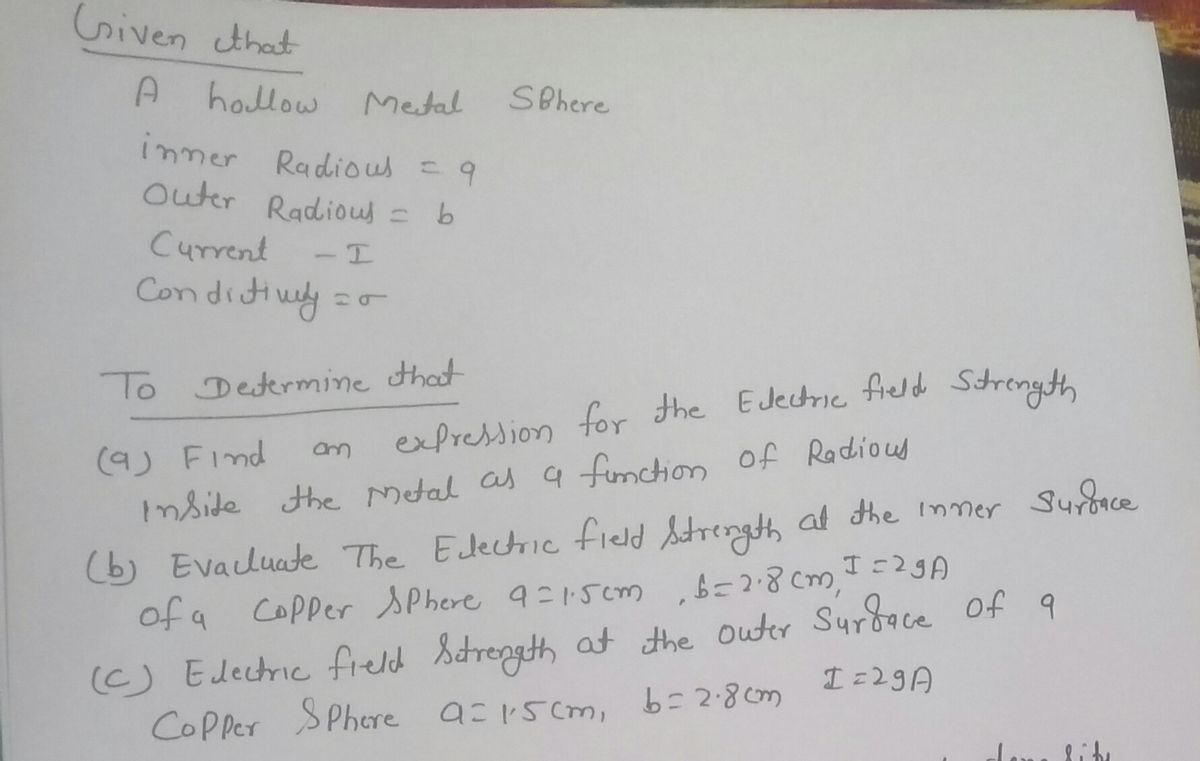 Given that
A hollow Metal Sphere
inner Radious = a
Outer Radious = b
Current - I
Condictivity = σ
To Determine that
(a) Find an expression for the Electric field Strength
Inside the Metal as a function of Radious
(b) Evacluate The Electric field Strength at the inner Surface
of a Copper Sphere a=1.5cm, b=2.8cm, I=29A
(c) Electric field Strength at the outer Surface of a
Copper Sphere a=1.5cm, b=2.8cm I=29A